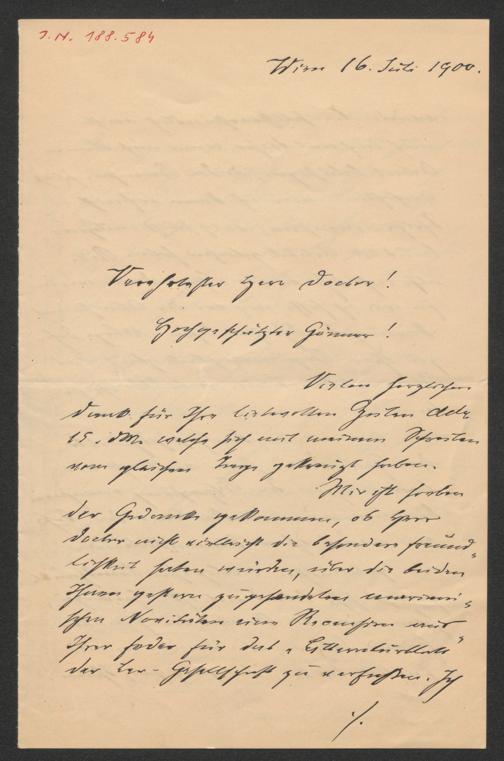 I.N. 188.584
Wien 16. Juli 1900.
Verehrtester Herr Doctor!
Hochgeschätzter Gönner!
Vielen herzlichen
Dank für Ihre liebevollen Zeilen ddto
15. dM. welche sich mit meinem Schreiben
vom gleichen Tage gekreuzt haben.
Mir ist soeben
der Gedanke gekommen, ob Herr
Doctor nicht vielleicht die besondere Freund-
lichkeit haben würden, über die beiden
Ihnen gestern zugesandten
schen Novitäten eine Recension aus
Ihrer Feder für das „Litteraturblatt"
der Leo-Gesellschaft zu verfassen. Ich
./.